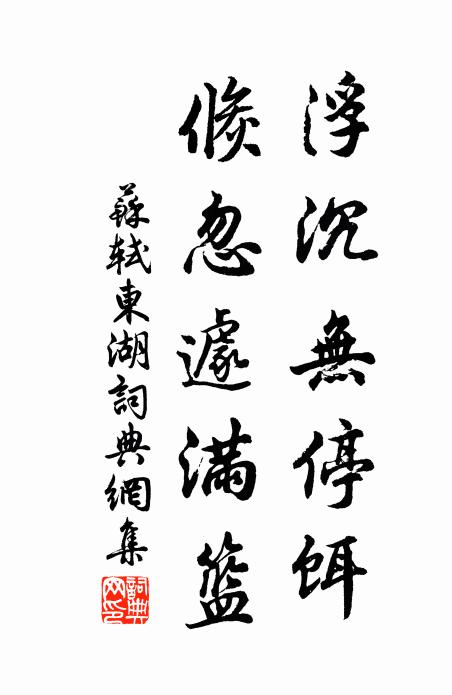 浮沉無停餌
倏忽遽滿籃
蘇軾東湖詞典網集
詞典網印